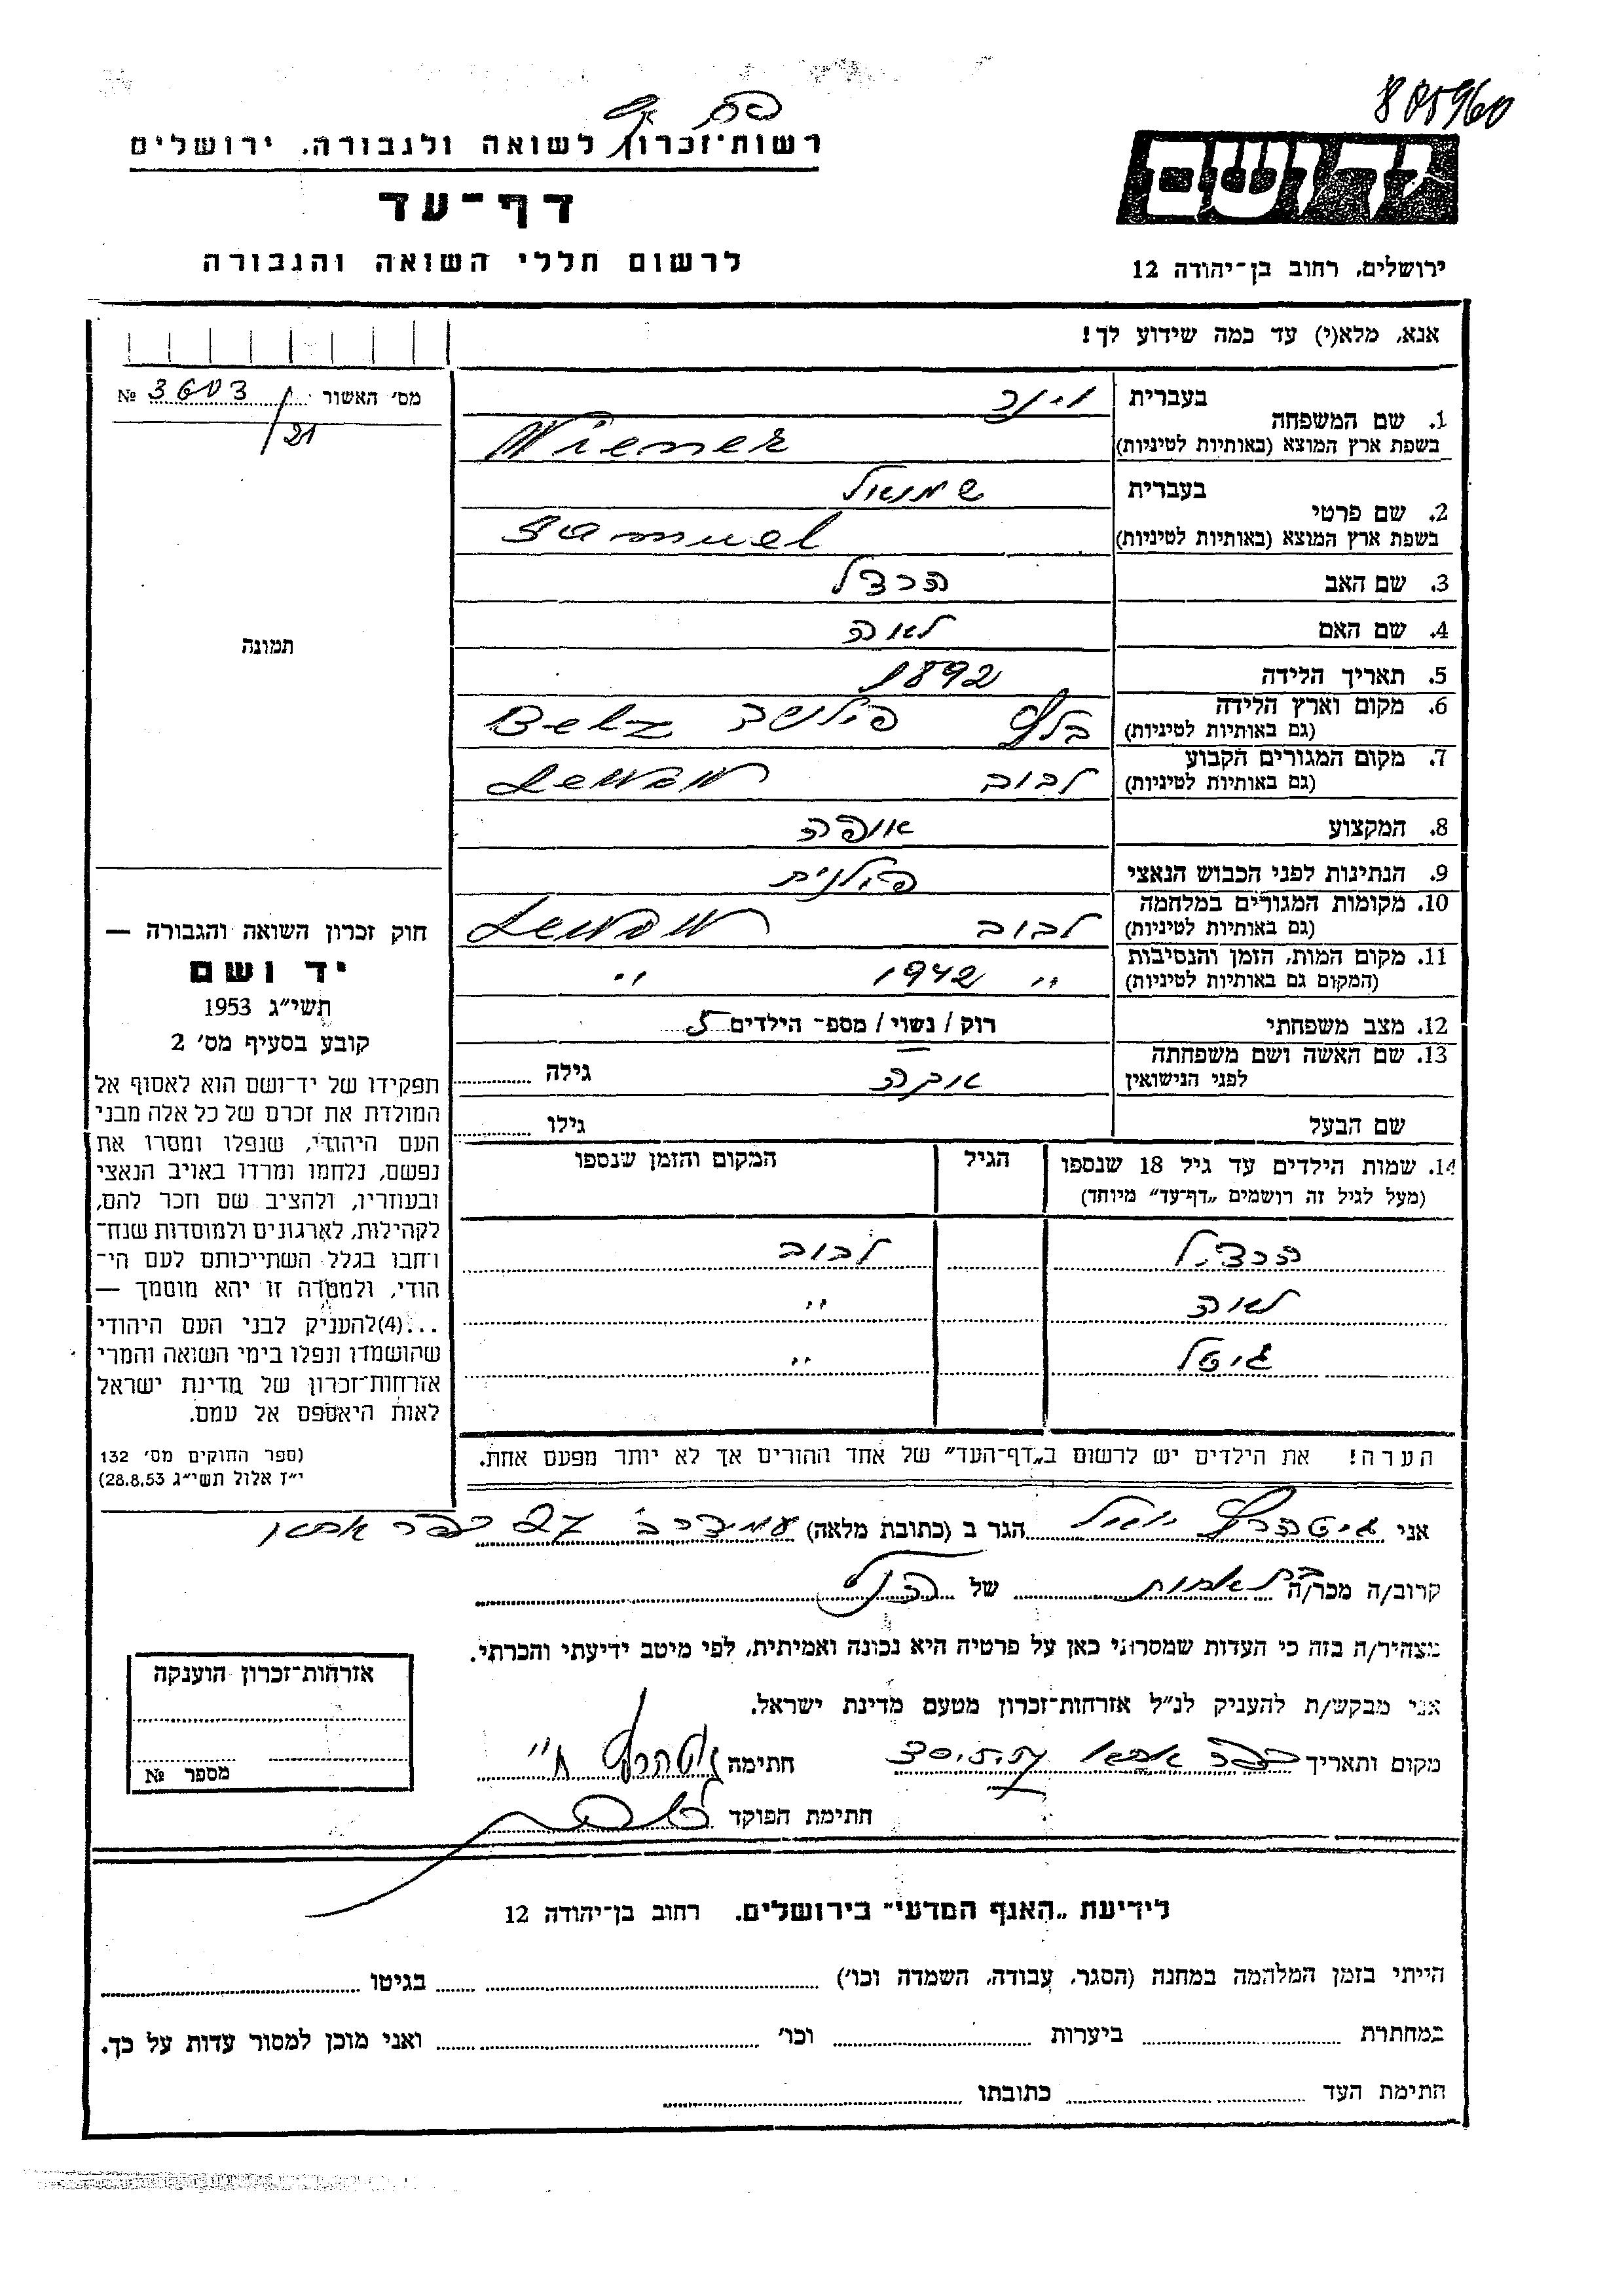 805960
רשות־זכרון לשואה ולגבורה, ירושלים
דף־עד
לרשום חללי השואה והגבורה
יד ושם
ירושלים, רחוב בן־יהודה 12
אנא, מלא(י) עד כמה שידוע לך!
מס׳ האשור 3603 №
/21
תמונה
1. שם המשפחה בעברית וינר
בשפת ארץ המוצא (באותיות לטיניות) Wiener
2. שם פרטי בעברית שמואל
בשפת ארץ המוצא (באותיות לטיניות) Samuel
3. שם האב הרצל
4. שם האם לאה
5. תאריך הלידה 1892
6. מקום וארץ הלידה (גם באותיות לטיניות) בלז Belz
7. מקום המגורים הקבוע (גם באותיות לטיניות) לבוב
8. המקצוע אופה
9. הנתינות לפני הכבוש הנאצי פולנית
10. מקומות המגורים במלחמה (גם באותיות לטיניות) לבוב
11. מקום המות, הזמן והנסיבות (המקום גם באותיות לטיניות) " 1942 "
12. מצב משפחתי רוק / נשוי / מספ־ הילדים 5
13. שם האשה ושם משפחתה לפני הנישואין גילה
שם הבעל גילו
14. שמות הילדים עד גיל 18 שנספו (מעל לגיל זה רושמים „דף־עד" מיוחד) הגיל המקום והזמן שנספו
הרצל לבוב
לאה "
גיטל "
הערה! את הילדים יש לרשום ב„דף־העד" של אחד ההורים אך לא יותר מפעם אחת.
חוק זכרון השואה והגבורה —
יד ושם
תשי״ג 1953
קובע בסעיף מס׳ 2
תפקידו של יד־ושם הוא לאסוף אל
המולדת את זכרם של כל אלה מבני
העם היהודי, שנפלו ומסרו את
נפשם, נלחמו ומרדו באויב הנאצי
ובעוזריו, ולהציב שם וזכר להם,
לקהילות, לארגונים ולמוסדות שנח־
רחבו בגלל השתייכותם לעם הי־
הודי, ולמטרה זו יהא מוסמך —
...(4)להעניק לבני העם היהודי
שהושמדו ונפלו בימי השואה והמרי
אזרחות־זכרון של מדינת ישראל
לאות היאספם אל עמם.
(ספר החוקים מס׳ 132
י״ז אלול תשי״ג 28.8.53)
אני הגר ב (כתובת מלאה) 27 כפר אתא
קרוב/ה מכר/ה של הנ״ל
מצהיר/ה בזה כי העדות שמסרתי כאן על פרטיה היא נכונה ואמיתית, לפי מיטב ידיעתי והכרתי.
אני מבקש/ת להעניק לנ״ל אזרחות־זכרון מטעם מדינת ישראל.
מקום ותאריך כפר אתא 30.5.57 חתימה
חתימת הפוקד
אזרחות־זכרון הוענקה
מספר №
לידיעת „האגף המדעי" בירושלים. רחוב בן־יהודה 12
הייתי בזמן המלחמה במחנה (הסגר, עבודה, השמדה וכו׳) בגיטו
במחתרת ביערות וכו׳ ואני מוכן למסור עדות על כך.
חתימת העד כתובתו